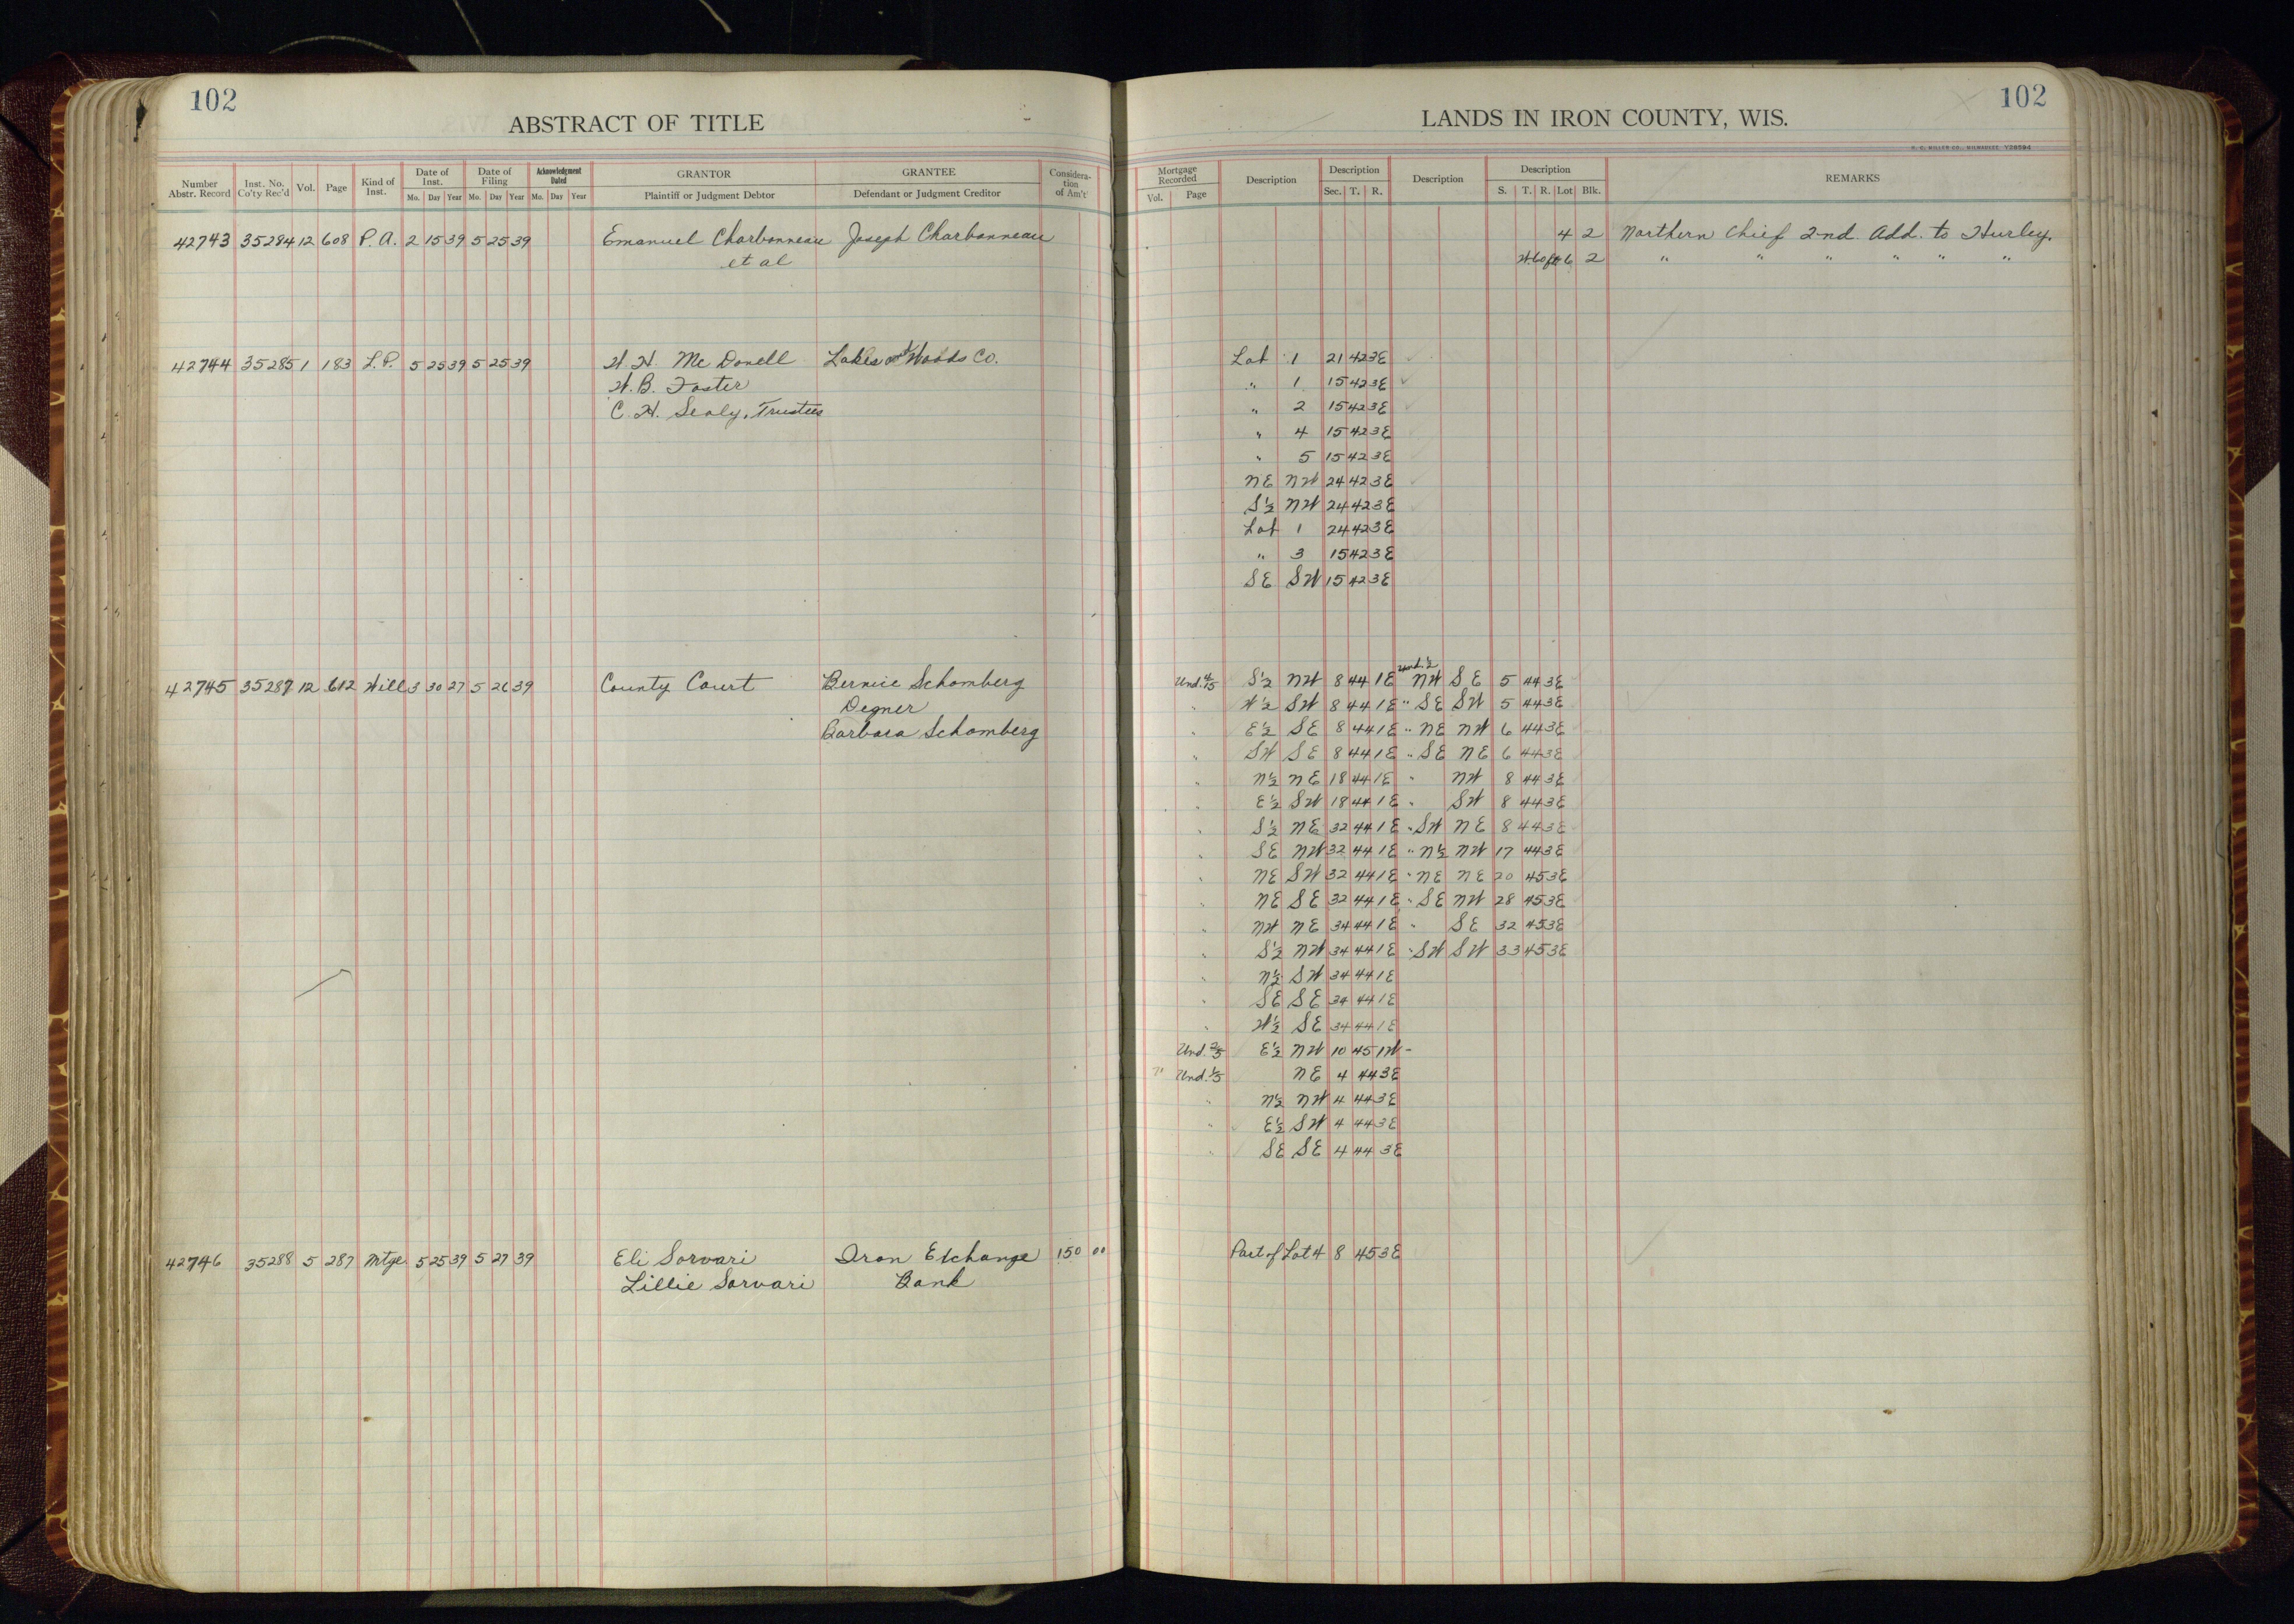 102
ABSTRACT OF TITLE
Number Abstr. Record Inst. No. Co'ty Rec'd Vol. Page Kind of Inst. Date of Inst. Mo. Day Year Date of Filing Mo. Day Year Acknowledgment Dated Mo. Day Year GRANTOR Plaintiff or Judgment Debtor GRANTEE Defendant or Judgment Creditor Considera- tion of Am't
42743 35284 12 608 P. A. 2 15 39 5 25 39 Emanuel Charbonneau Joseph Charbonneau
et al
42744 35285 1 183 L.P. 5 25 39 5 25 39 W. H. Mc Donell Lakes and Woods Co.
W. B. Foster
C. H. Sealy, Trustees
42745 35287 12 612 Will 3 30 27 5 26 39 County Court Bernice Schomberg
Degner
Barbara Schomberg
42746 35288 5 287 Mtge 5 25 39 5 27 39 Eli Sorvari Iron Exchange 150 00
Lillie Sorvari Bank
102
LANDS IN IRON COUNTY, WIS.
H. C. MILLER CO., MILWAUKEE Y29594
Mortgage Recorded Vol. Page Description Description Sec. T. R. Description Description S. T. R. Lot Blk. REMARKS
4 2 Northern Chief 2nd. Add. to Hurley.
W. 60 ft 6 2 " " " " " "
Lot 1 21 42 3E
" 1 15 42 3E
" 2 15 42 3E
" 4 15 42 3E
" 5 15 42 3E
NE NW 24 42 3E
S½ NW 24 42 3E
Lot 1 24 42 3E
" 3 15 42 3E
SE SW 15 42 3E
Und. ½
Und. 4/15 S½ NW 8 44 1E NW SE 5 44 3E
" W½ SW 8 44 1E " SE SW 5 44 3E
" E½ SE 8 44 1E " NE NW 6 44 3E
" SW SE 8 44 1E " SE NE 6 44 3E
" N½ NE 18 44 1E " NW 8 44 3E
" E½ SW 18 44 1E " SW 8 44 3E
" S½ NE 32 44 1E " SW NE 8 44 3E
" SE NW 32 44 1E " N½ NW 17 44 3E
" NE SW 32 44 1E " NE NE 20 45 3E
" NE SE 32 44 1E " SE NW 28 45 3E
" NW NE 34 44 1E " SE 32 45 3E
" S½ NW 34 44 1E " SW SW 33 45 3E
" N½ SW 34 44 1E
" SE SE 34 44 1E
" W½ SE 34 44 1E
Und. 2/5 E½ NW 10 45 1W -
" Und. 1/5 NE 4 44 3E
" N½ NW 4 44 3E
" E½ SW 4 44 3E
" SE SE 4 44 3E
Part of Lot 4 8 45 3E